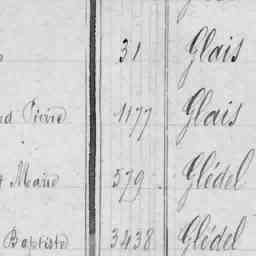 31 Glais
Pierre 1177 Glais
Marie 579 Glédel
Baptiste 3438 Glédel